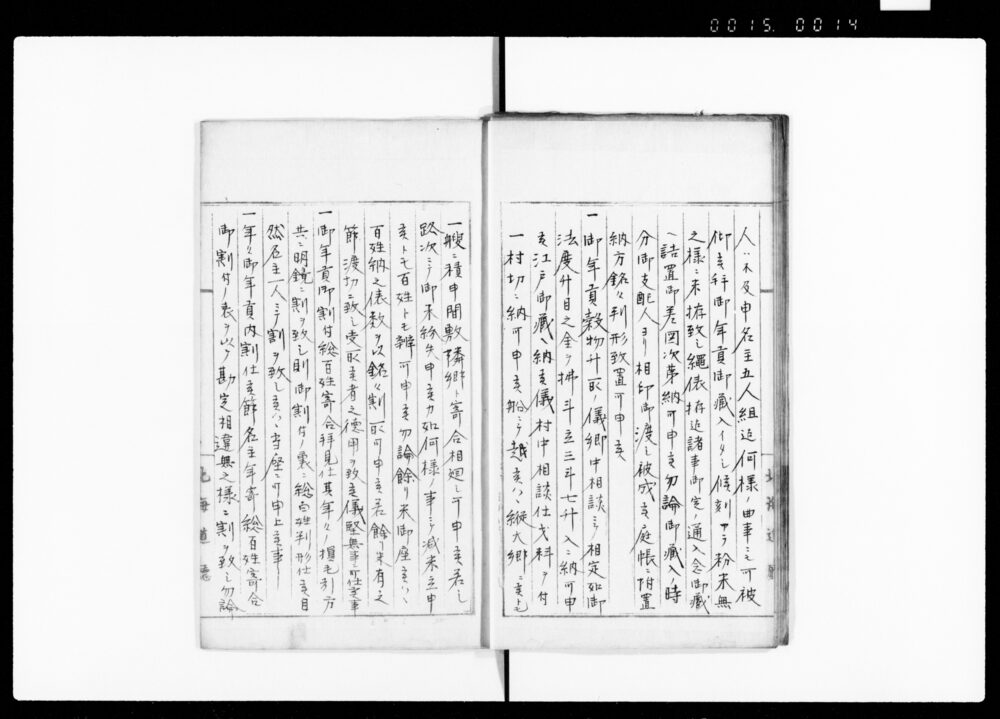 0015. 0014
人ハ不及申名主五人組迄何様ノ曲事ニ可被
仰亥拜御年貢御藏入イタシ候刻アラ粉未無
之様ニ未拵致シ繩俵拵迄諸事御定ノ通入念御藏
ヘ詰置御差図次第納可申亥勿論御藏入ノ時
分御支配人ヨリ相印御渡シ被成亥庭帳ニ附置
納方銘々判形致置可申亥
一御年貢穀物升取ノ儀郷中相談ニテ相定如御
法度升目之金ヲ拂斗立三斗七升入ニ納可申
亥江戸御藏ヘ納亥儀村中相談仕弋料ヲ付
一村切ニ納可申亥船ニテ越亥ハヽ縦大郷ニ亥トモ
一艘ニ積申間敷隣郷ト寄合相廻シ可申亥若シ
路次ニテ御米紛失申亥カ如何様ノ事ニテ減米立申
亥トモ百姓トモ辨可申亥勿論餘リ米御座亥ハヽ
百姓納之俵数ヲ以銘々割取可申亥若餘リ米有之
節渡切ニ致シ受取亥者之德用ヲ致亥儀堅無事ニ可仕亥事
一御年貢御割付総百姓寄合拜見仕其年々ノ損毛引方
共ニ明鏡ニ割ヲ致シ則御割付ノ裏ニ総百姓判形仕亥自
然名主一人ニテ割ヲ致シ亥ハヽ
可申上亥事
一年々御年貢内割仕亥節名主年寄総百姓寄合
御割付ノ表ヲ以テ勘定相違無之様ニ割ヲ致シ勿論
北海道廳